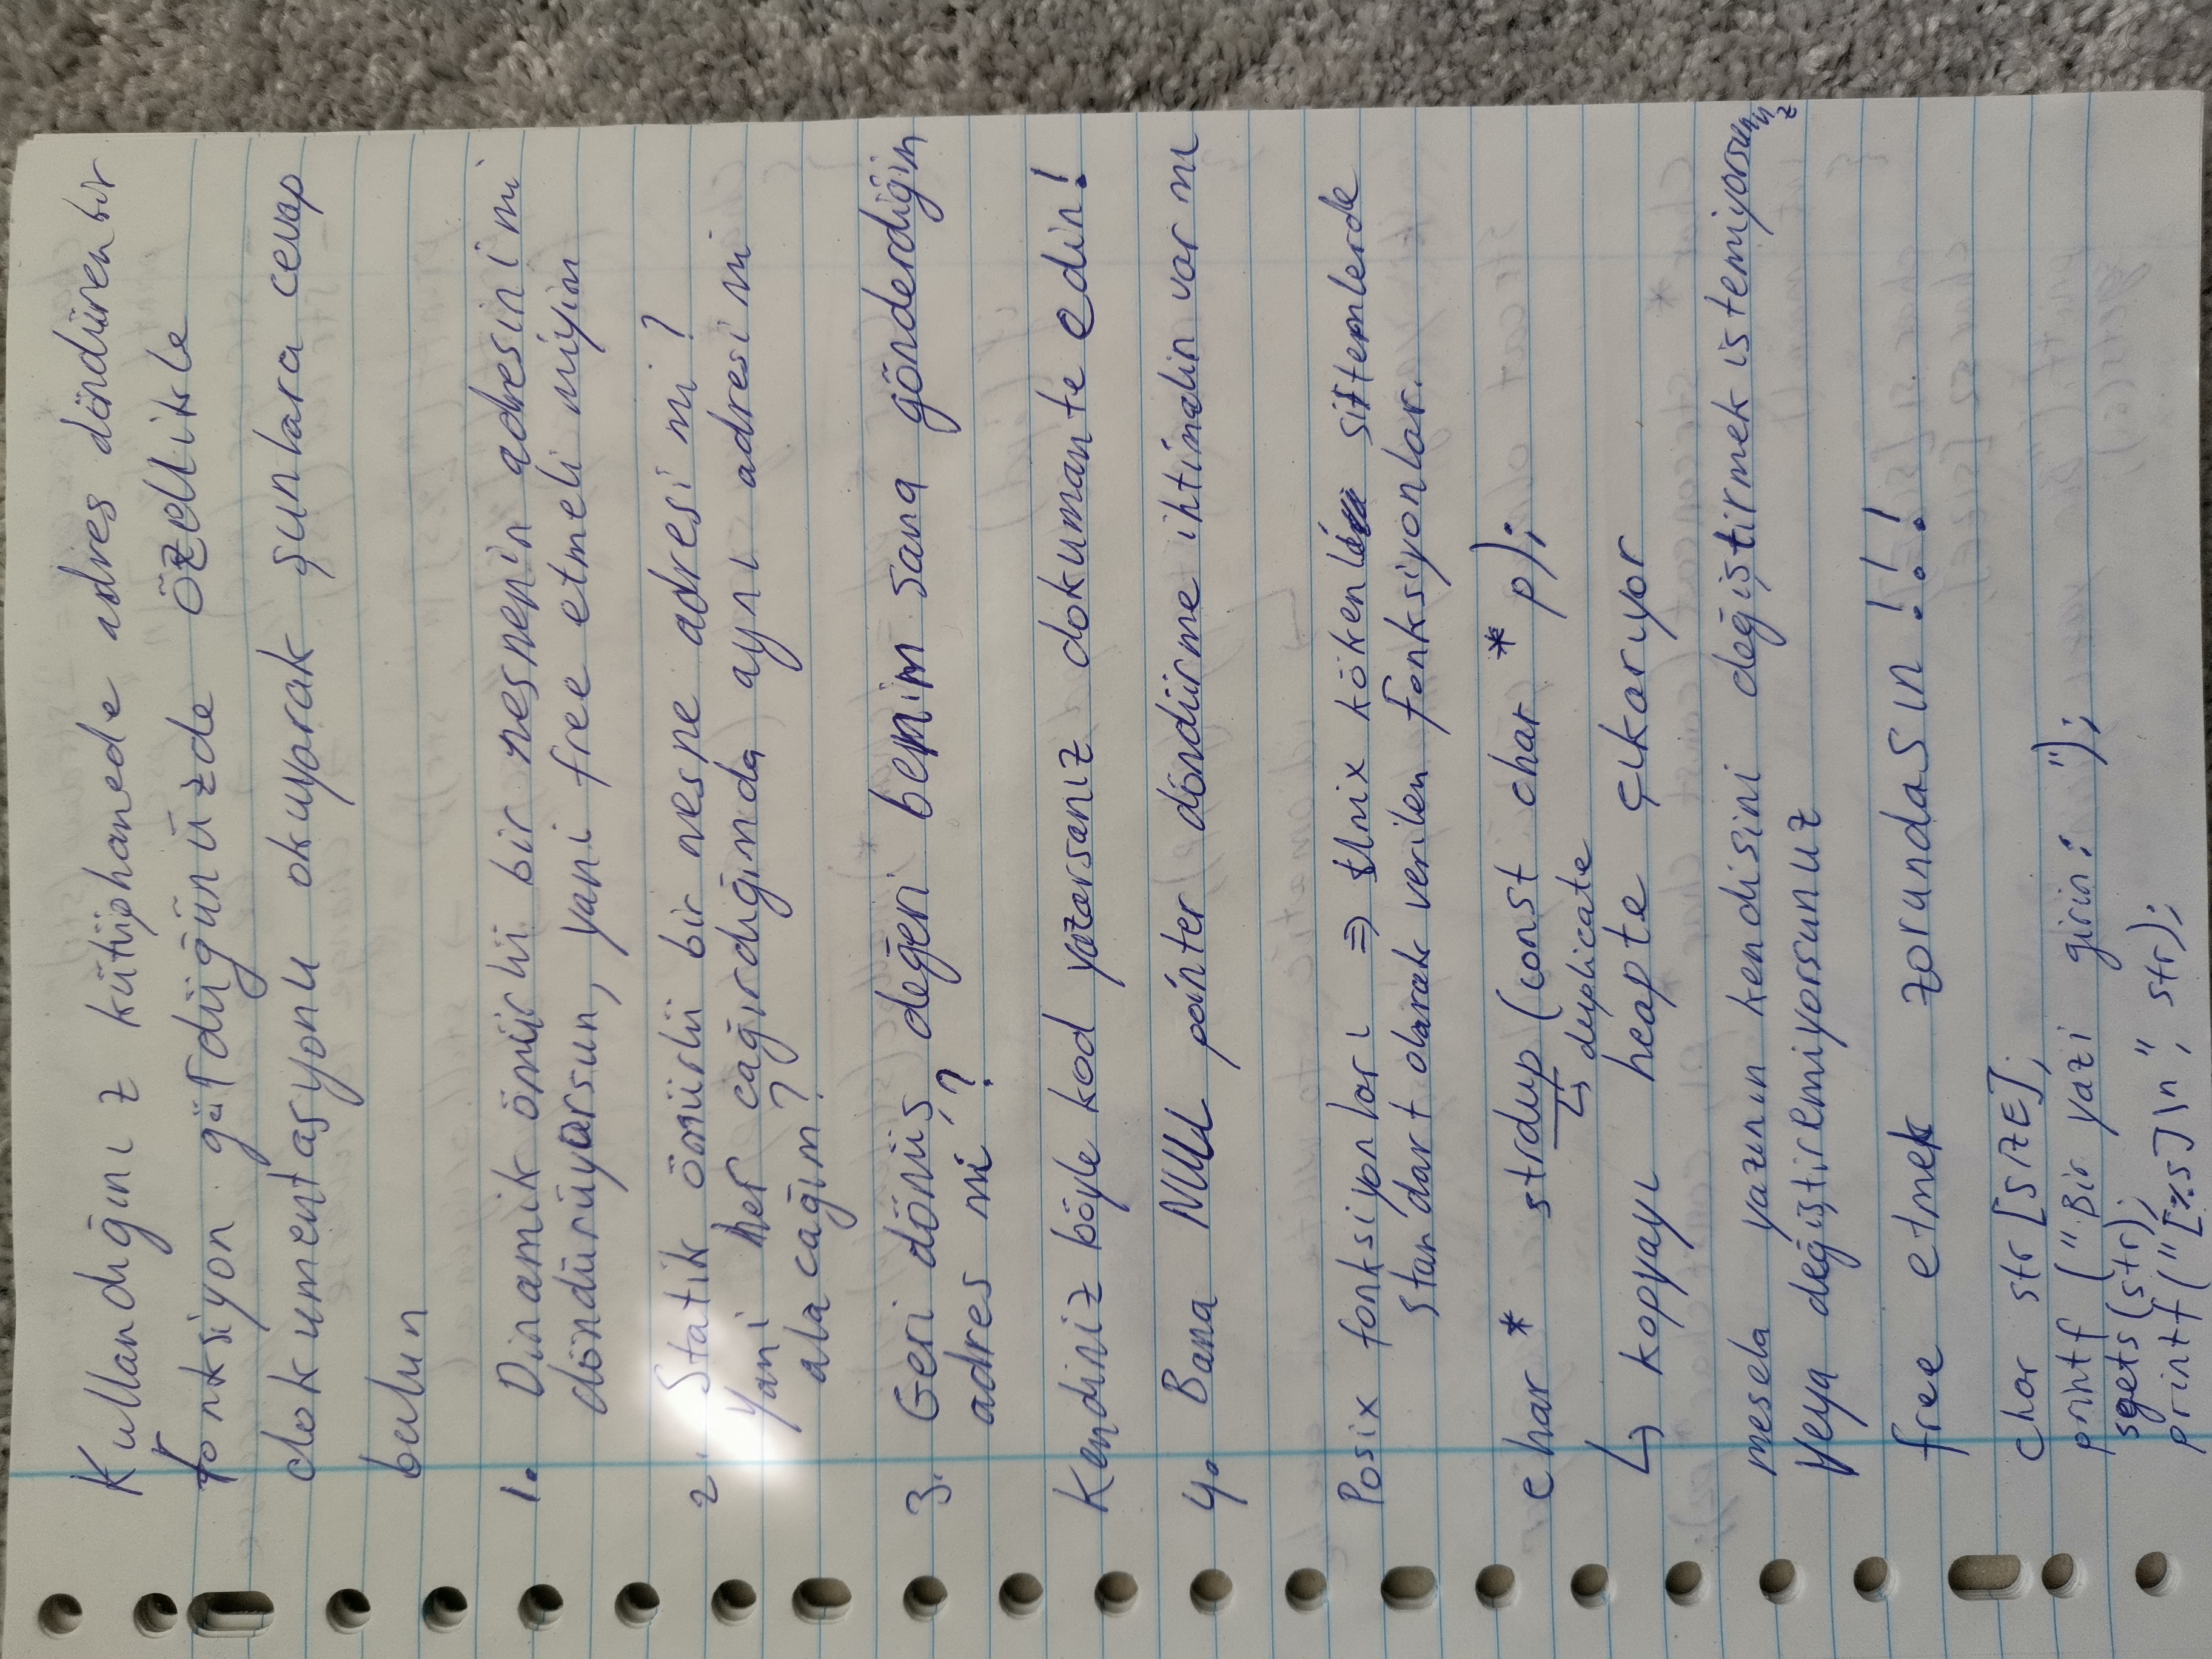 Kullandığınız kütüphanede adres döndüren bir
fonksiyon gördüğünüzde özellikle
dokumentasyonu okuyarak şunlara cevap
bulun
1. Dinamik ömürlü bir nesnenin adresini mi
döndürüyorsun, yani free etmeli miyim
2. Statik ömürlü bir nesne adresi mi?
Yani her çağırdığımda aynı adresi mi
alacağım?
3. Geri dönüş değeri benim sana gönderdiğim
adres mi?
Kendiniz böyle kod yazarsanız dokumante edin!
4. Bana NULL pointer döndürme ihtimalin var mı
Posix fonksiyonları ⇒ Unix kökenli sistemlerde
standart olarak verilen fonksiyonlar.
char * strdup (const char * p);
↳ duplicate
↳ kopyayı heapte çıkarıyor
mesela yazının kendisini değiştirmek istemiyorsunuz
veya değiştiremiyorsunuz
free etmek zorundasın!!!
char str [SIZE];
printf ("Bir yazi girin: ");
sgets(str);
printf("[%s]\n", str);